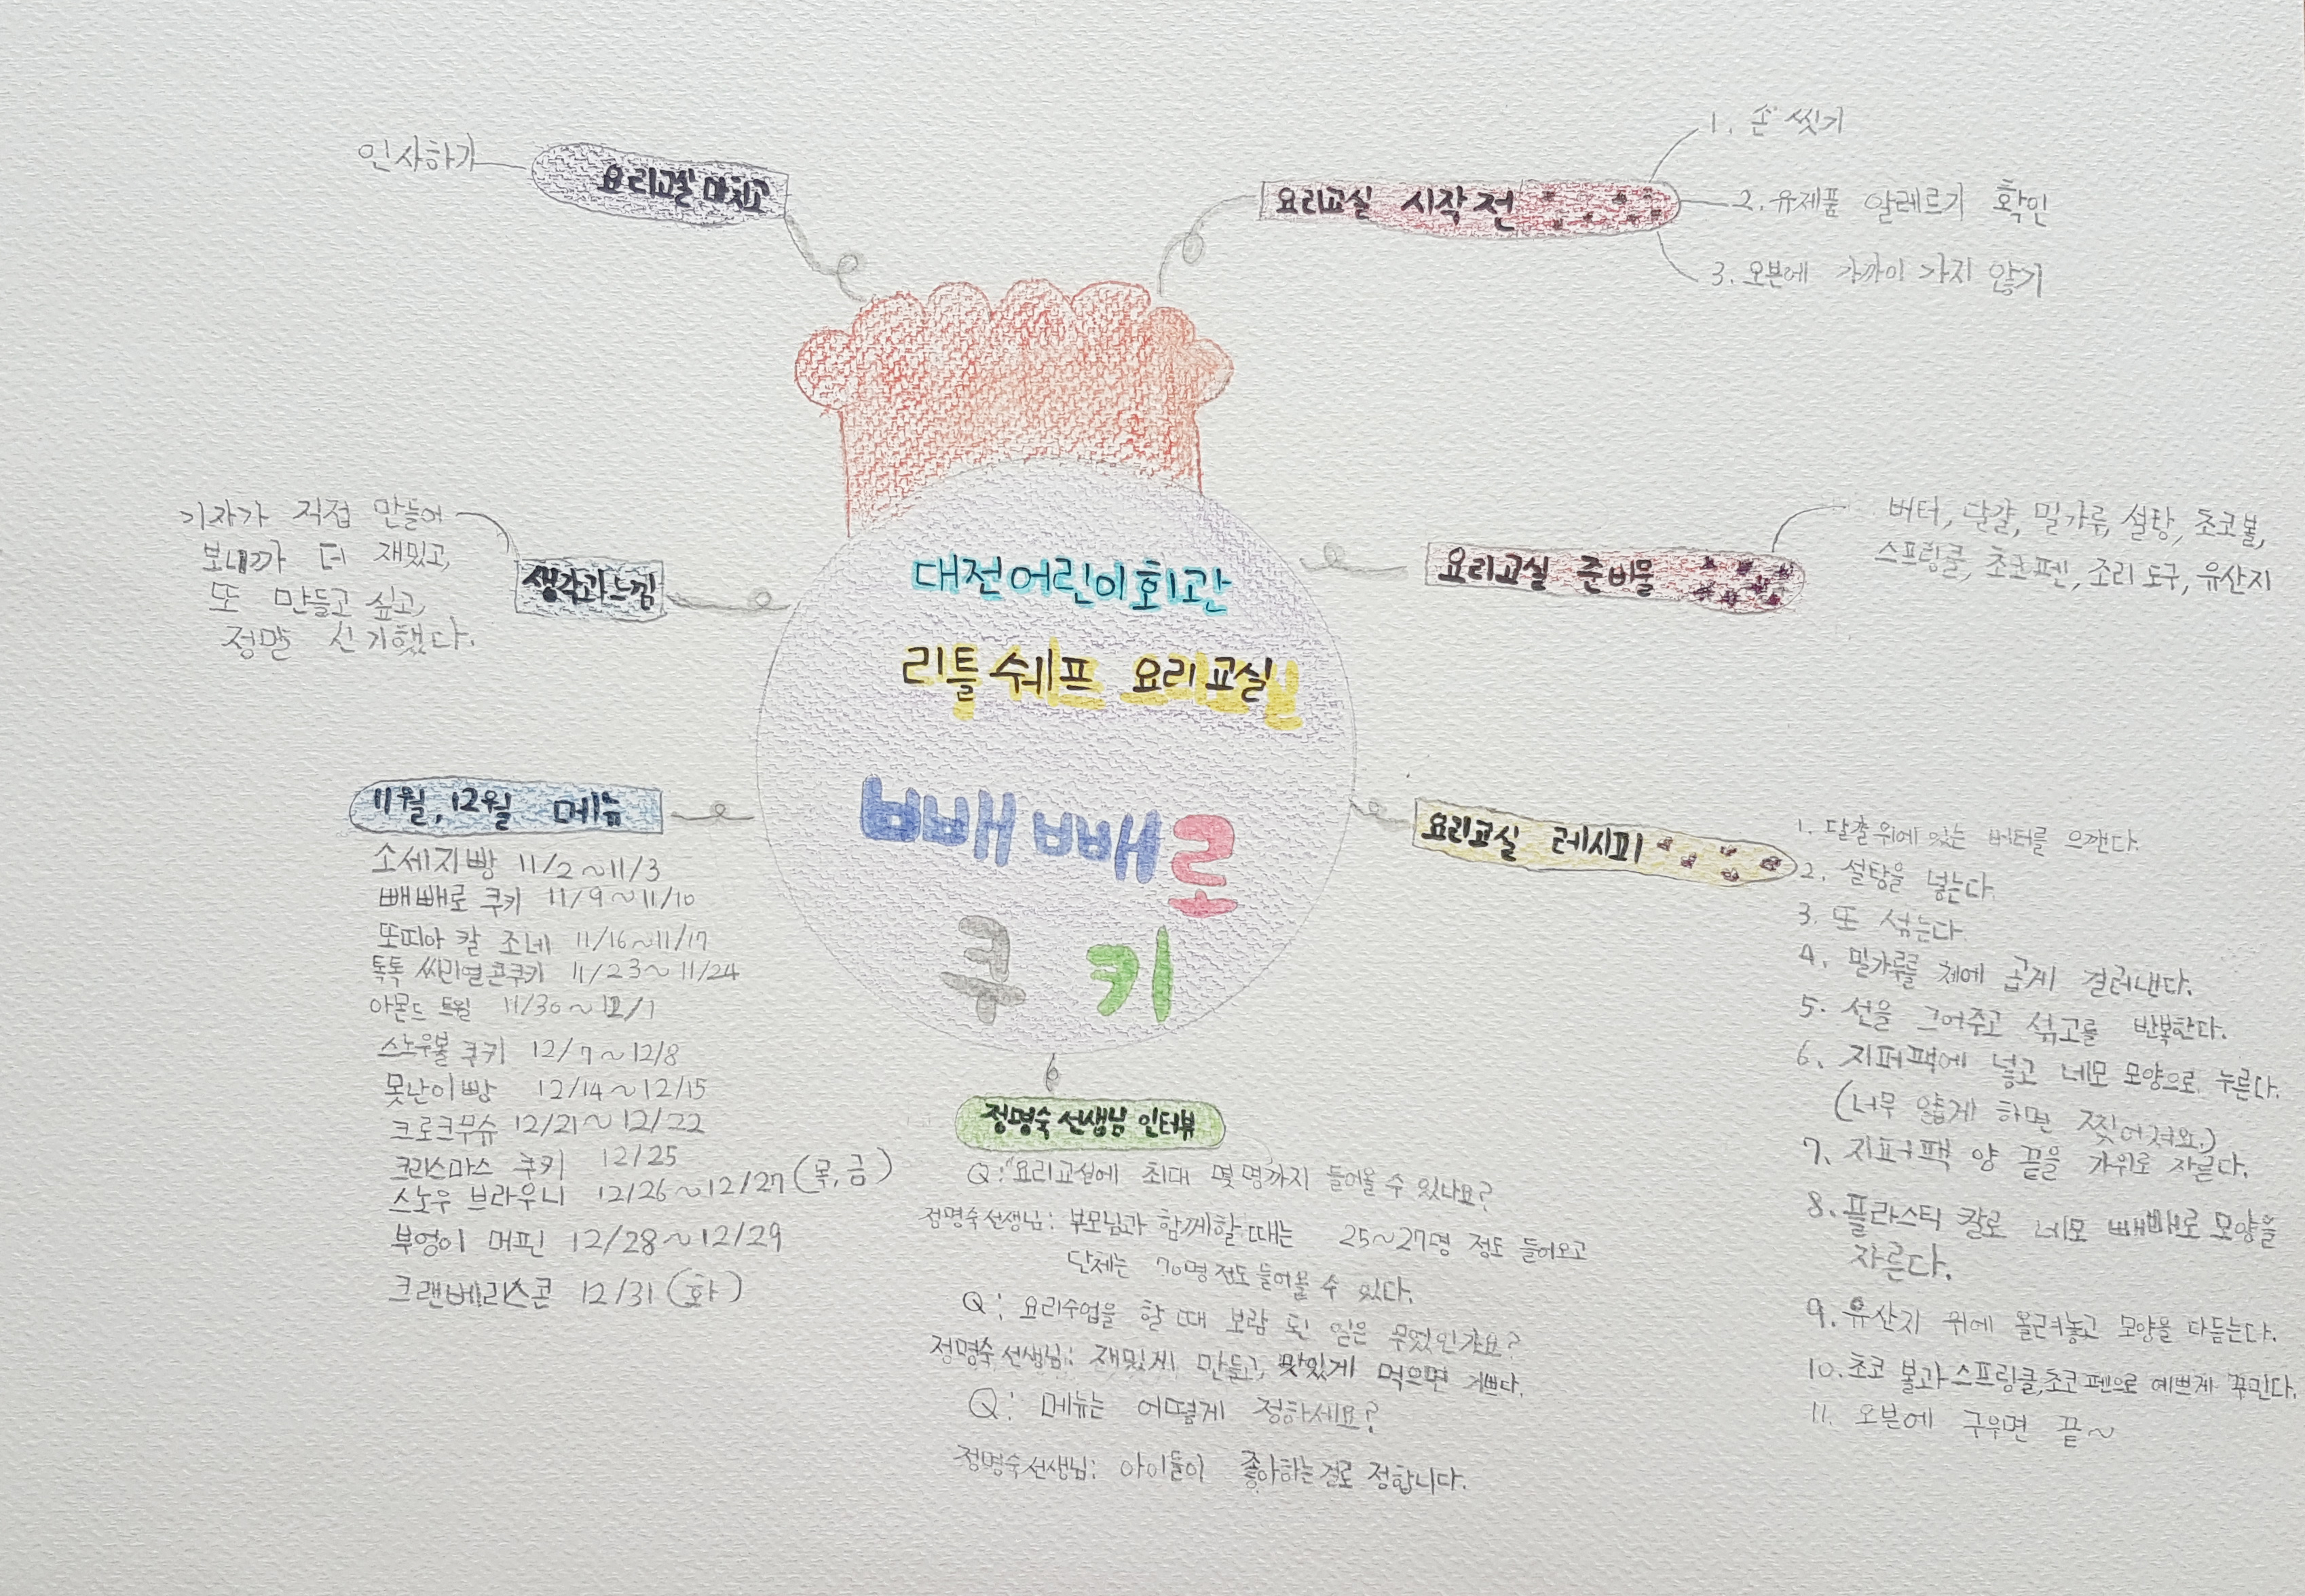 대전어린이회관
리틀 쉐프 요리교실
빼빼로
쿠키
요리교실 시작 전
1. 손 씻기
2. 유제품 알레르기 확인
3. 오븐에 가까이 가지 않기
요리교실 준비물
버터, 달걀, 밀가루, 설탕, 초코볼,
스프링클, 초코펜, 조리 도구, 유산지
요리교실 레시피
1. 달걀 위에 있는 버터를 으깬다.
2. 설탕을 넣는다.
3. 또 섞는다.
4. 밀가루를 체에 곱게 걸러낸다.
5. 선을 그어주고 섞고를 반복한다.
6. 지퍼팩에 넣고 네모 모양으로 누른다.
(너무 얇게 하면 찢어져요.)
7. 지퍼팩 양 끝을 가위로 자른다.
8. 플라스틱 칼로 네모 빼빼로 모양을
자른다.
9. 유산지 위에 올려놓고 모양을 다듬는다.
10. 초코 볼과 스프링클, 초코펜으로 예쁘게 꾸민다.
11. 오븐에 구우면 끝~
정명숙 선생님 인터뷰
Q: "요리교실에 최대 몇 명까지 들어올 수 있나요?
정명숙선생님: 부모님과 함께할 때는 25~27명 정도 들어오고
단체는 70명 정도 들어올 수 있다.
Q: 요리수업을 할 때 보람 된 일은 무엇인가요?
정명숙 선생님: 재밌게 만들고, 맛있게 먹으면 기쁘다.
Q: 메뉴는 어떻게 정하세요?
정명숙선생님: 아이들이 좋아하는걸로 정합니다.
11월, 12월 메뉴
소세지빵 11/2~11/3
빼빼로 쿠키 11/9~11/10
또띠아 칼 조네 11/16~11/17
톡톡 씨리얼콘쿠키 11/23~11/24
아몬드 트윌 11/30~12/1
스노우볼 쿠키 12/7~12/8
못난이빵 12/14~12/15
크로크무슈 12/21~12/22
크리스마스 쿠키 12/25
스노우 브라우니 12/26~12/27 (목, 금)
부엉이 머핀 12/28~12/29
크랜베리스콘 12/31 (화)
생각과느낌
기자가 직접 만들어
보니까 더 재밌고,
또 만들고 싶고,
정말 신기했다.
요리교실 마치고
인사하기